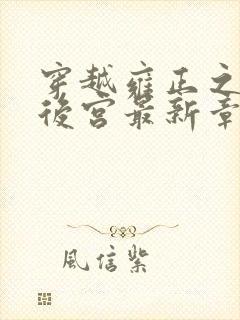 穿越雍正之
後宮最新章
風信紫